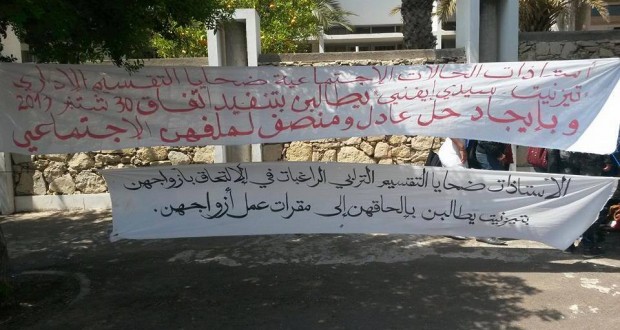 أستاذات الحالات الاجتماعية ضحايا التقسيم الإداري
تيزنيت سيدي إيفني يطالبن بتنفيد اتفاق 30 شتنبر 2013
و بإيجاد حل عادل و منصف لملفهن الاجتماعي
الاستاذات ضحايا التقسيم الترابي الراغبات في الالتحاق بأزواجهن
بتيزنيت يطالبن بإلحاقهن إلى مقرات عمل أزواجهن.